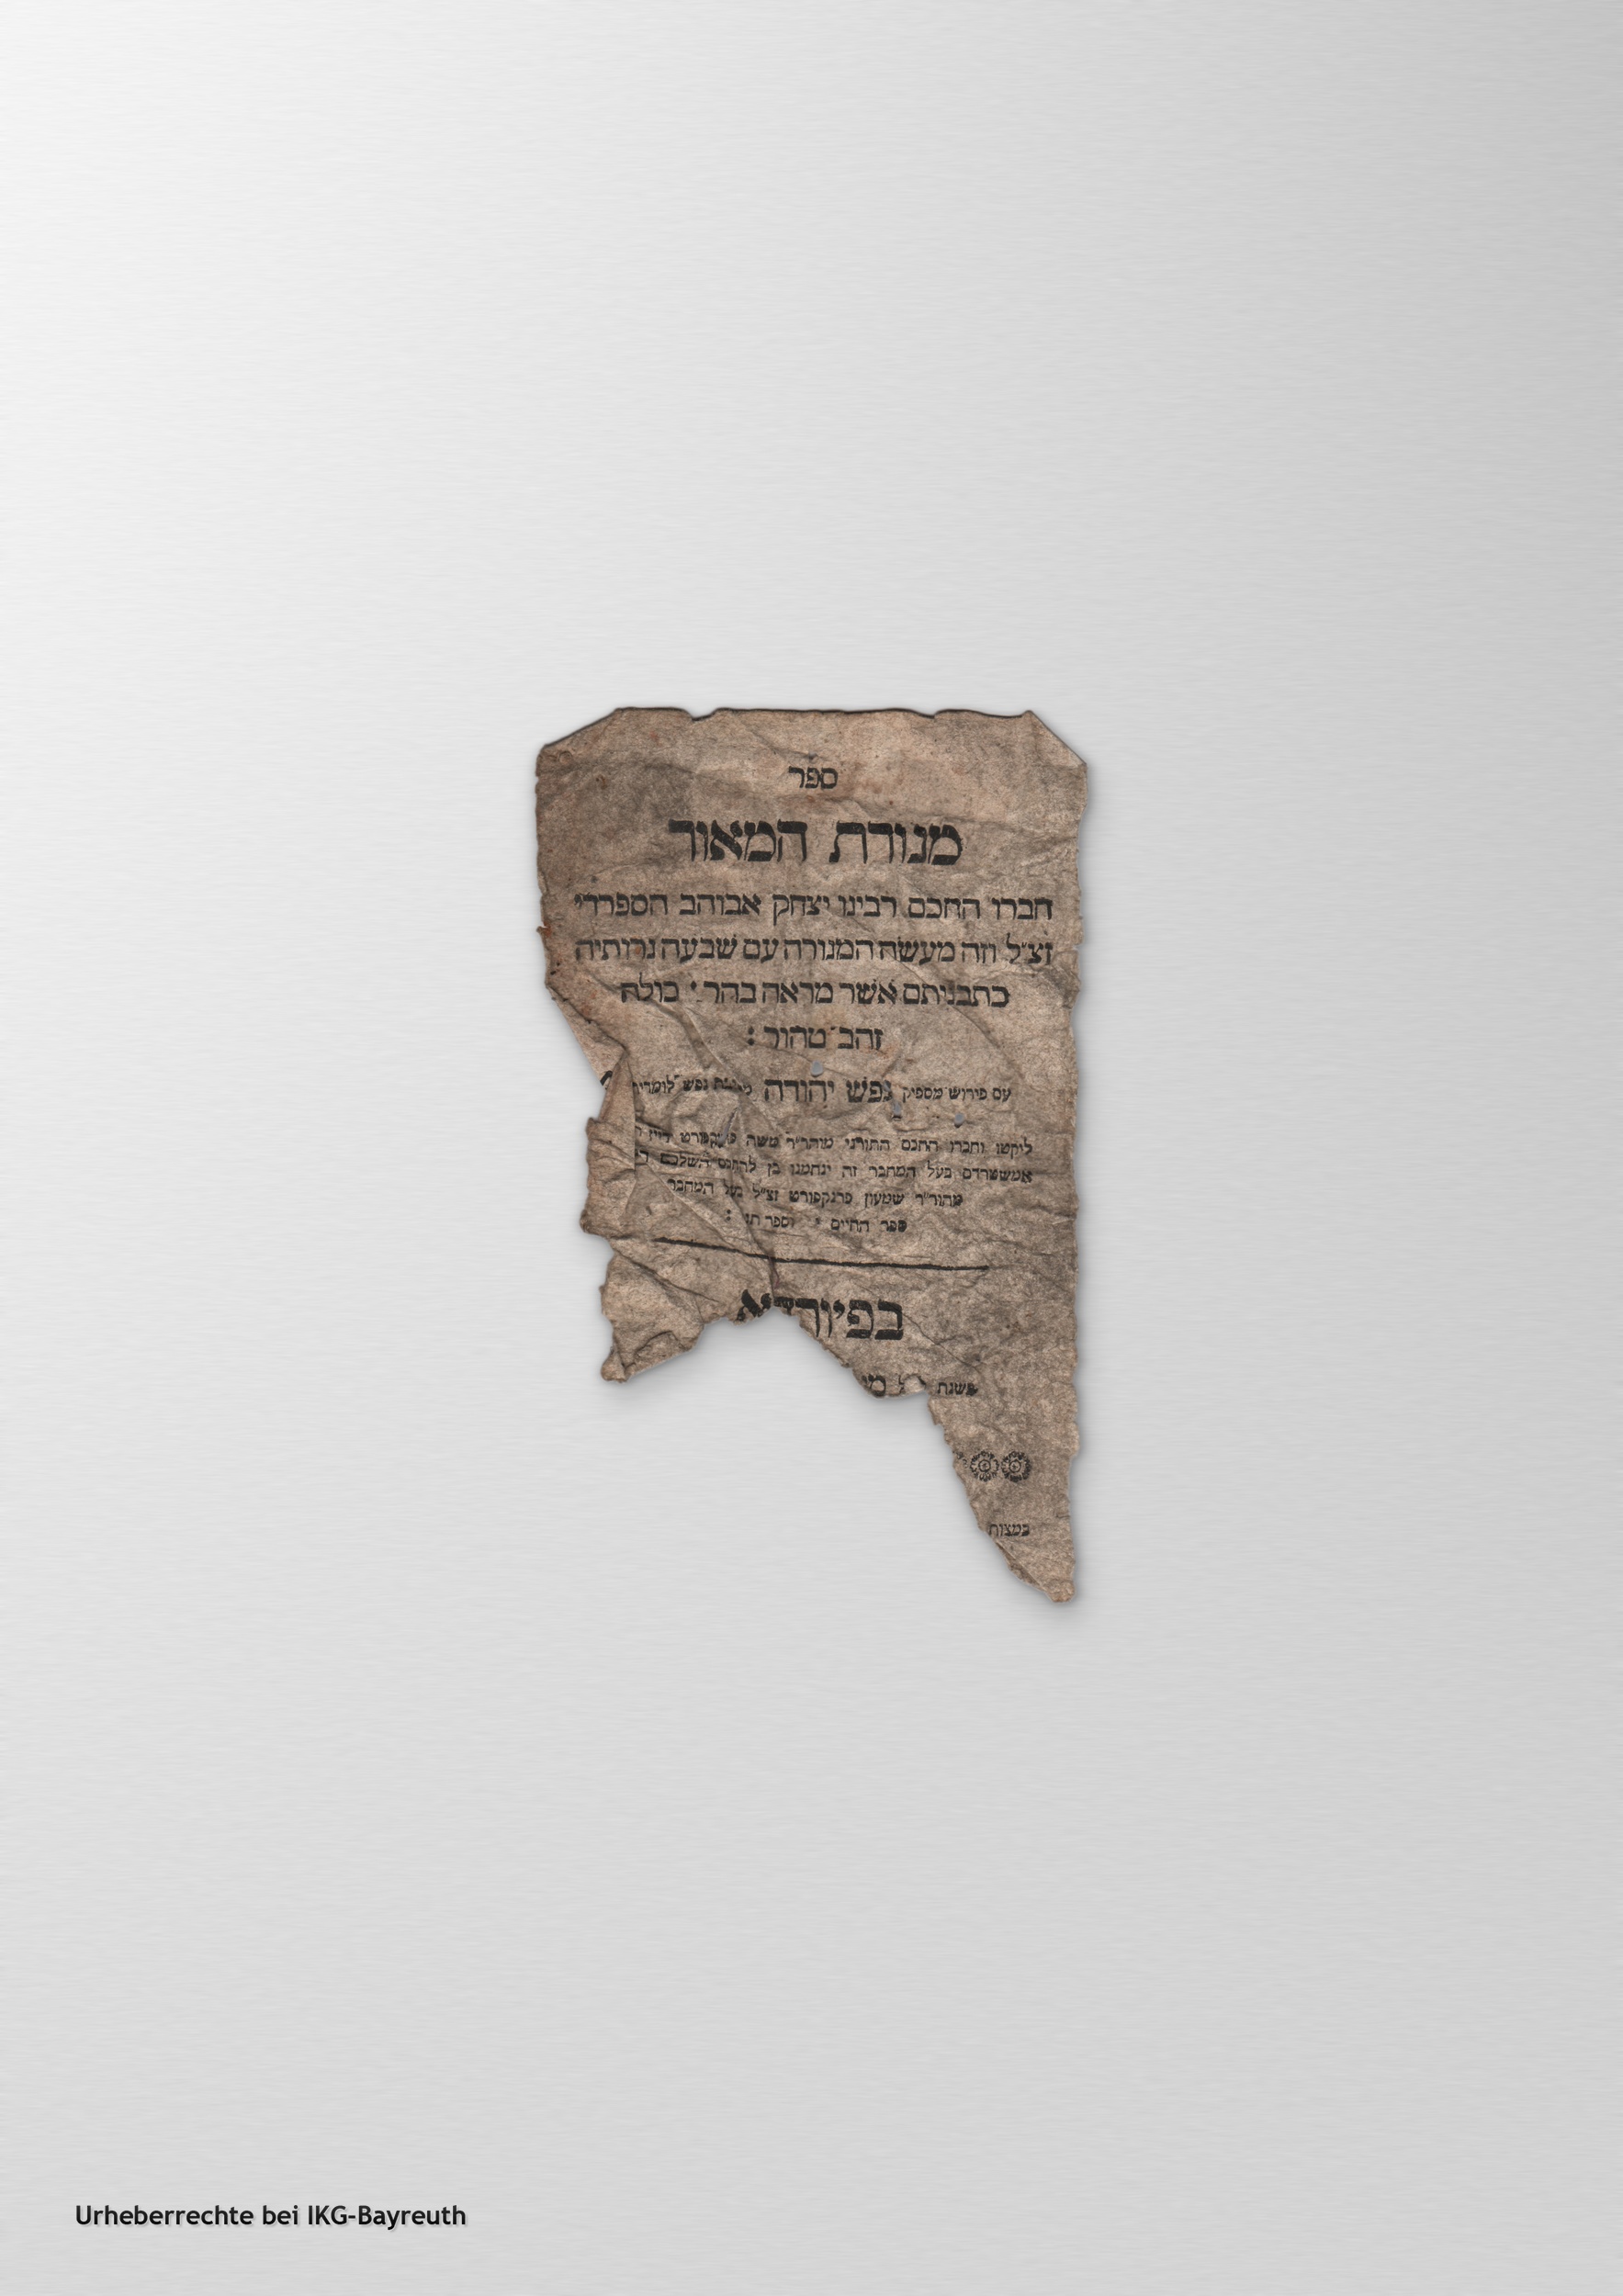 ספר
מנורת המאור
חברו החכם רבינו יצחק אבוהב הספרדי
זצ״ל וזה מעשה המנורה עם שבעה נרותיה
כתבניתם אשר מראה בהר: כולה
זהב טהור:
עם פירוש מספיק נפש יהודה נפש
ליקטו וחברו החכם התורני מוהר״ר משה
אמשטרדם בעל המחבר זה ינחמנו בן
מהור״ר שמעון פרנקפורט זצ״ל בעל המחבר
ספר החיים וספר
בפיורדא
בשנת
במצות
Urheberrechte bei IKG-Bayreuth